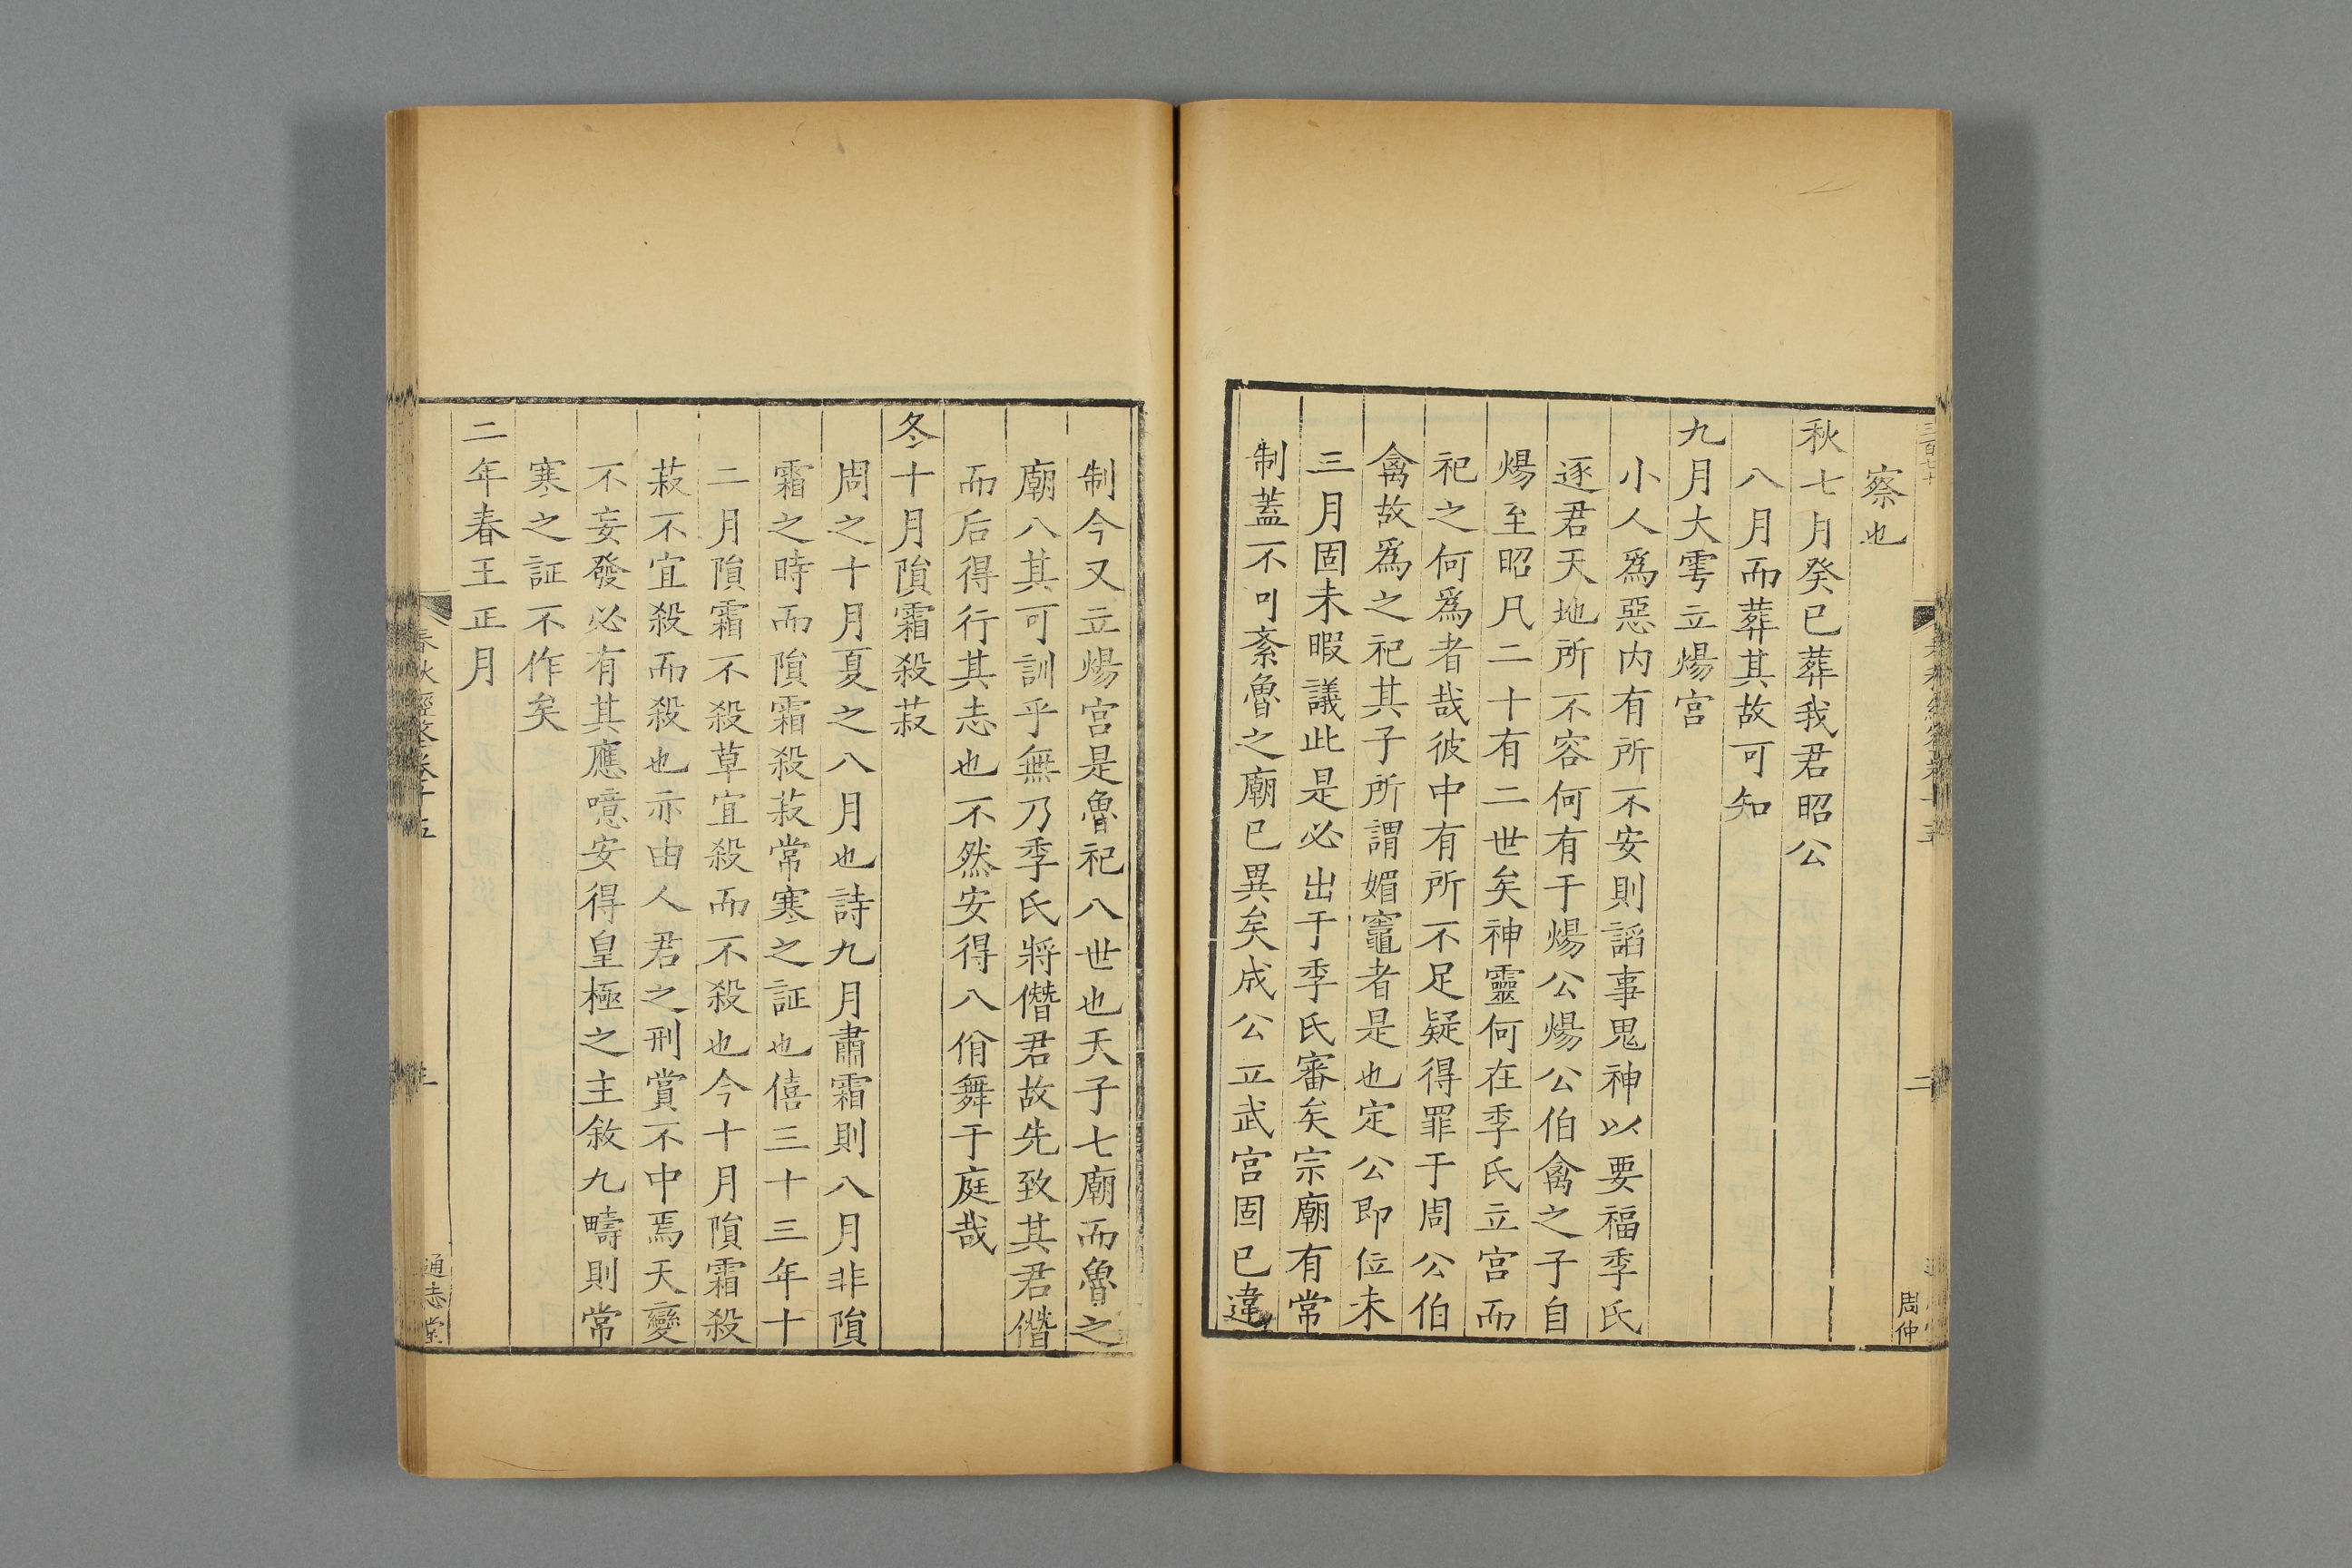 察也
秋七月癸巳葬我君昭公
八月而葬其故可知
九月大雩立煬宮
小人爲惡內有所不安則謟事鬼神以要福季氏
逐君天地所不容何有于煬公煬公伯禽之子自
煬至昭凡二十有二世矣神靈何在季氏立宮而
祀之何爲者哉彼中有所不足疑得罪于周公伯
禽故爲之祀其子所謂媚竈者是也定公即位未
三月固未暇議此是必出于季氏審矣宗廟有常
制蓋不可紊魯之廟已異矣成公立武宮固已違
周仲
制今又立煬宮是魯祀八世也天子七廟而魯之
廟八其可訓乎無乃季氏將僭君故先致其君僭
而后得行其志也不然安得八佾舞于庭哉
冬十月隕霜殺菽
周之十月夏之八月也詩九月肅霜則八月非隕
霜之時而隕霜殺菽常寒之証也僖三十三年十
二月隕霜不殺草宜殺而不殺也今十月隕霜殺
菽不宜殺而殺也亦由人君之刑賞不中焉天變
不妄發必有其應噫安得皇極之主敘九疇則常
寒之証不作矣
二年春王正月
通志堂